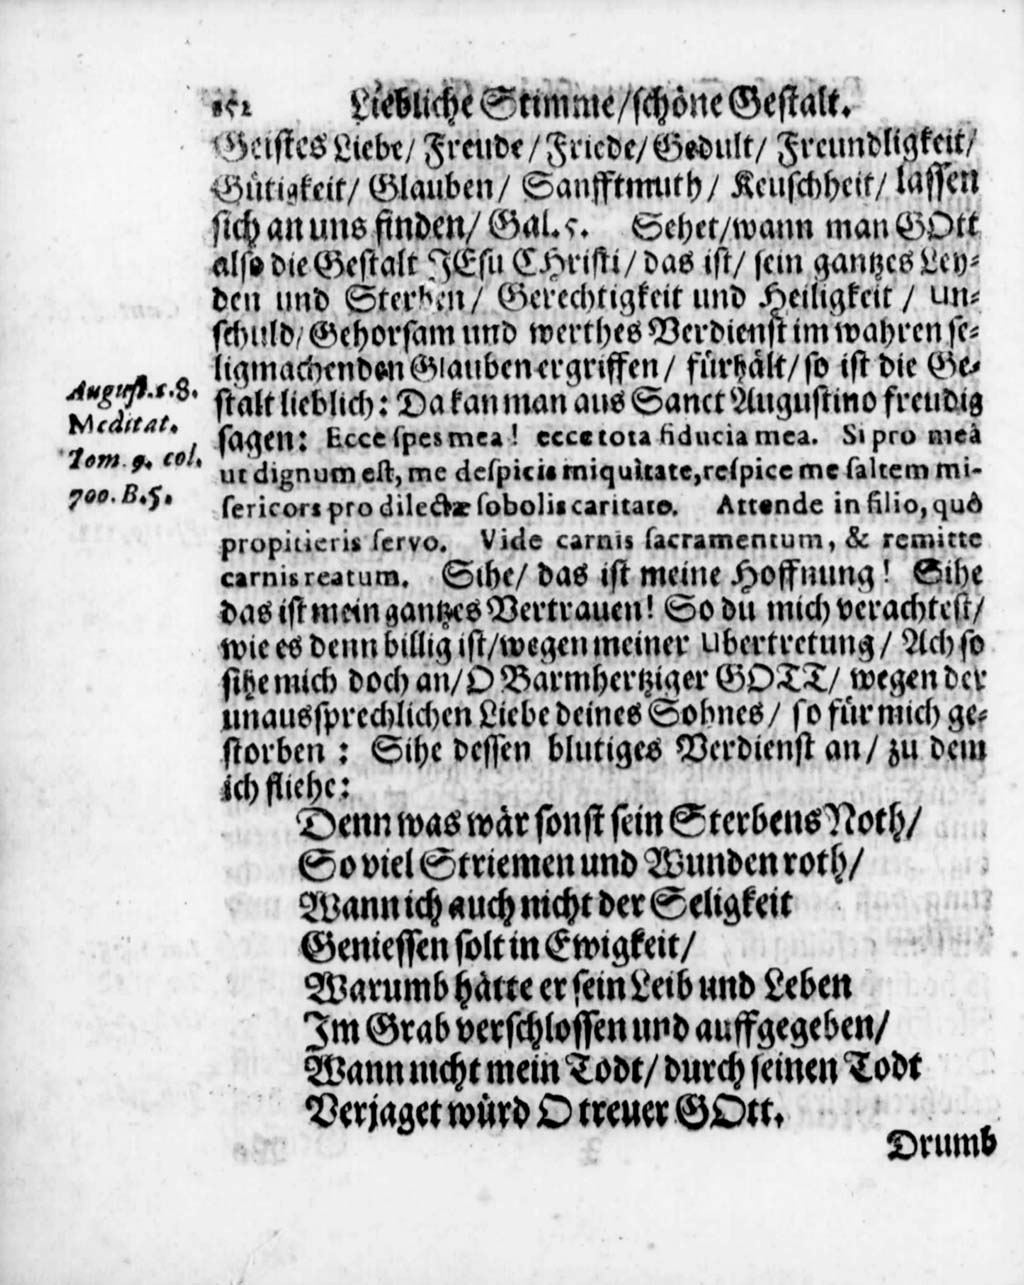 Liebliche Stimme/schöne Gestalt.
Geistes Liebe/ Freude/ Friede/ Gedult/ Freundligkeit/
Gütigkeit/ Glauben/ Sanfftmuth/ Keuschheit/ lassen
sich an uns finden/ Gal. 5. Sehet/wann man GOtt
also die Gestalt JEsu CHristi/ das ist/ sein gantzes Ley-
den und Sterben/ Gerechtigkeit und Heiligkeit / Un-
schuld/ Gehorsam und werthes Verdienst im wahren se-
ligmachenden Glauben ergriffen/ fürhält/ so ist die Ge-
stalt lieblich: Da kan man aus Sanct Augustino freudig
sagen: Ecce spes mea! ecce tota fiducia mea. Si pro meâ
ut dignum est, me despicis iniquitate, respice me saltem mi-
sericors pro dilectæ sobolis caritate. Attende in filio, quô
propitieris servo. Vide carnis sacramentum, & remitte
carnis reatum. Sihe/ das ist meine Hoffnung! Sihe
das ist mein gantzes Vertrauen! So du mich verachtest/
wie es denn billig ist/wegen meiner Ubertretung/ Ach so
sihe mich doch an/O Barmhertziger GOTT/ wegen der
unaussprechlichen Liebe deines Sohnes/ so für mich ge-
storben : Sihe dessen blutiges Verdienst an/ zu dem
ich fliehe:
August. c. 8.
Meditat.
Tom. 9. col.
700. B. 5.
Denn was wär sonst sein Sterbens Noth/
So viel Striemen und Wunden roth/
Wann ich auch nicht der Seligkeit
Geniessen solt in Ewigkeit/
Warumb hätte er sein Leib und Leben
Im Grab verschlossen und auffgegeben/
Wann nicht mein Todt/ durch seinen Todt
Verjaget würd O treuer GOtt.
Drumb